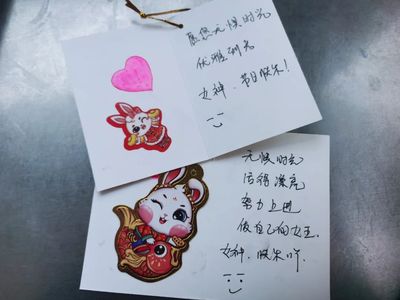 愿您无惧时光
优雅到老
女神,节日快乐!
无惧时光
活得漂亮
努力上进
做自己的女王.
女神,快乐吖.